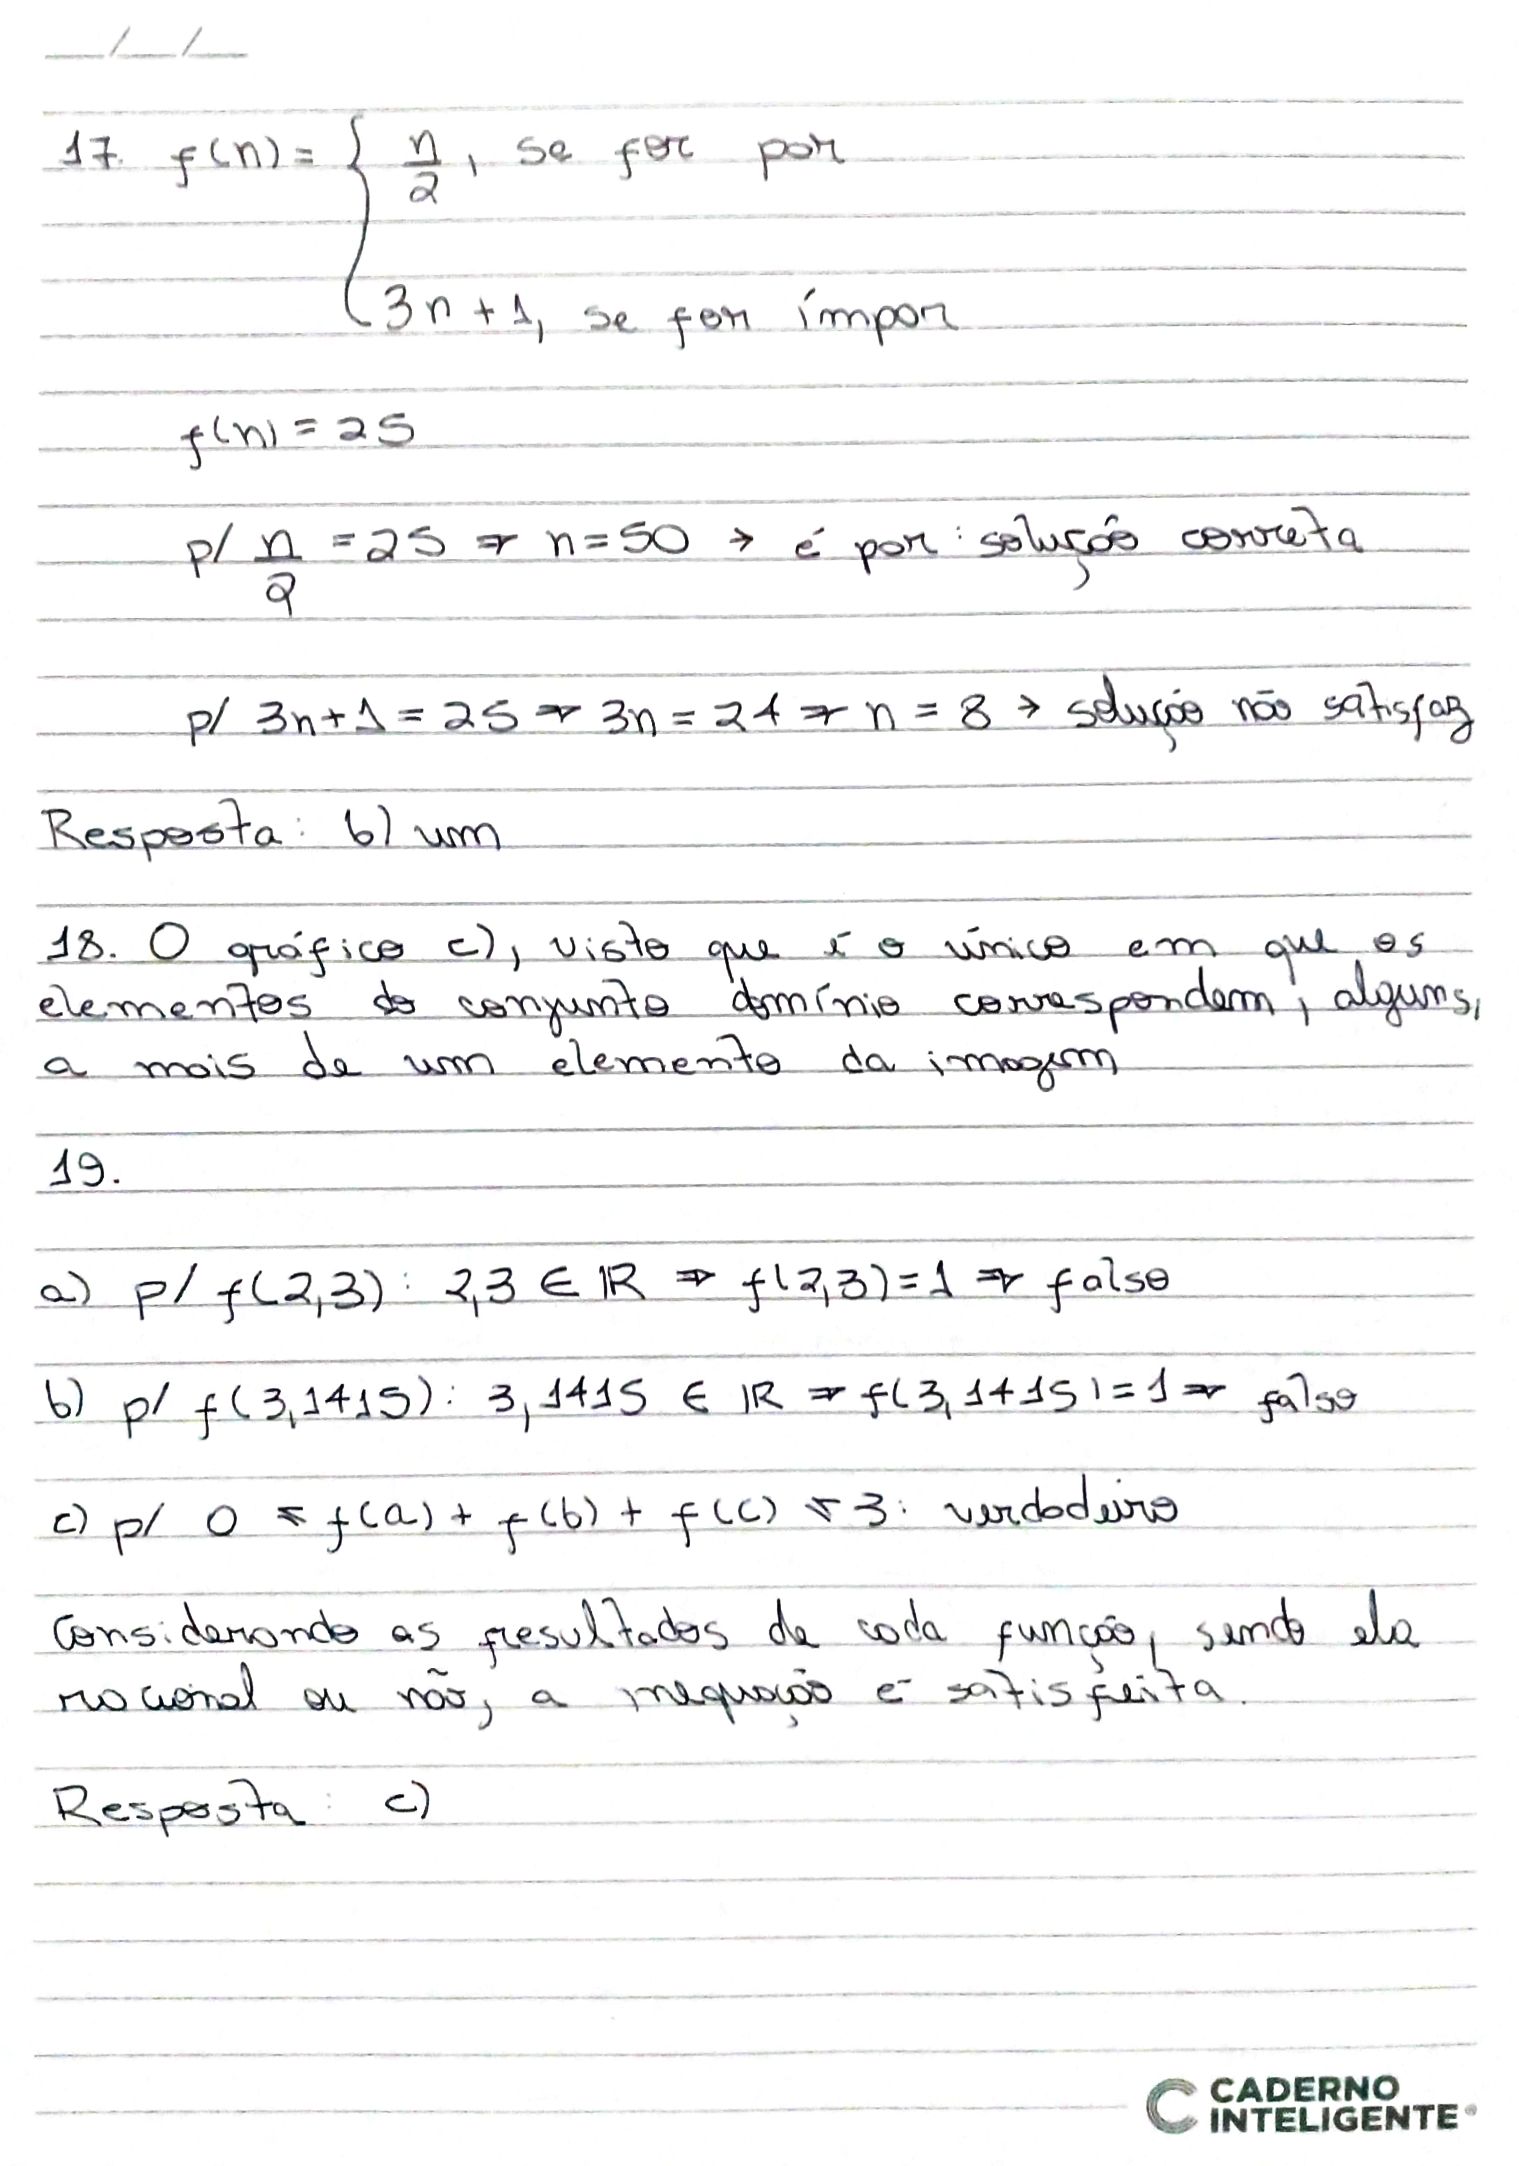 __/__/__
17. f(n) = { n/2, se for par
3n + 1, se for ímpar
f(n) = 25
p/ n/2 = 25 ⇒ n = 50 → é par: solução correta
p/ 3n + 1 = 25 ⇒ 3n = 24 ⇒ n = 8 → solução não satisfaz
Resposta: b) um
18. O gráfico c), visto que é o único em que os
elementos do conjunto domínio correspondem, alguns,
a mais de um elemento da imagem
19.
a) p/ f(2,3): 2,3 ∈ ℝ ⇒ f(2,3) = 1 ⇒ falso
b) p/ f(3,1415): 3,1415 ∈ ℝ ⇒ f(3,1415) = 1 ⇒ falso
c) p/ 0 ≤ f(a) + f(b) + f(c) ≤ 3: verdadeiro
Considerando as resultados de cada função, sendo ela
racional ou não, a inequação é satisfeita.
Resposta: c)
CADERNO
INTELIGENTE